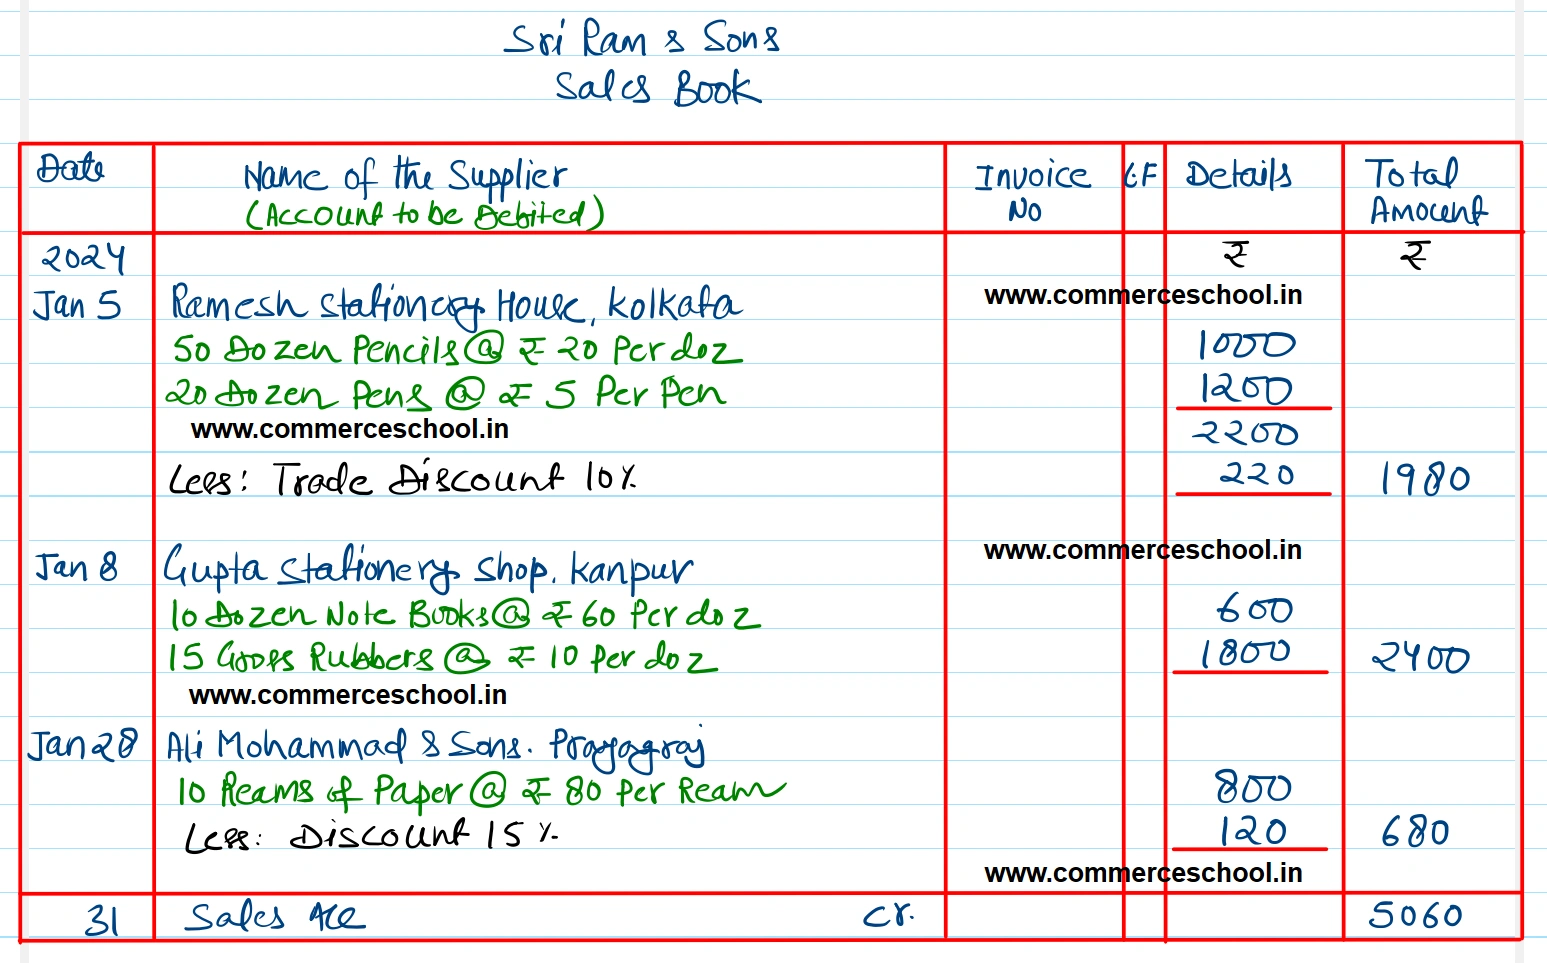 Sri Ram & Sons
Sales Book
Date Name of the Supplier Invoice L.F Details Total
(Account to be Debited) No Amount
2024 ₹ ₹
www.commerceschool.in
Jan 5 Ramesh Stationery House, Kolkata
50 Dozen Pencils @ ₹ 20 Per doz 1000
20 Dozen Pens @ ₹ 5 Per Pen 1200
www.commerceschool.in 2200
Less: Trade Discount 10% 220 1980
www.commerceschool.in
Jan 8 Gupta Stationery Shop. Kanpur
10 Dozen Note Books @ ₹ 60 Per doz 600
15 Gross Rubbers @ ₹ 10 Per doz 1800 2400
www.commerceschool.in
Jan 28 Ali Mohammad & Sons. Prayagraj
10 Reams of Paper @ ₹ 80 Per Ream 800
Less: Discount 15% 120 680
www.commerceschool.in
31 Sales A/c Cr. 5060